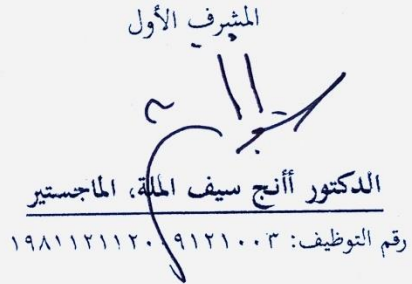 المشرف الأول
الدكتور أأنج سيف الملة، الماجستير
رقم التوظيف: ١٩٨١١٢١١٢٠٠٩١٢١٠٠٣